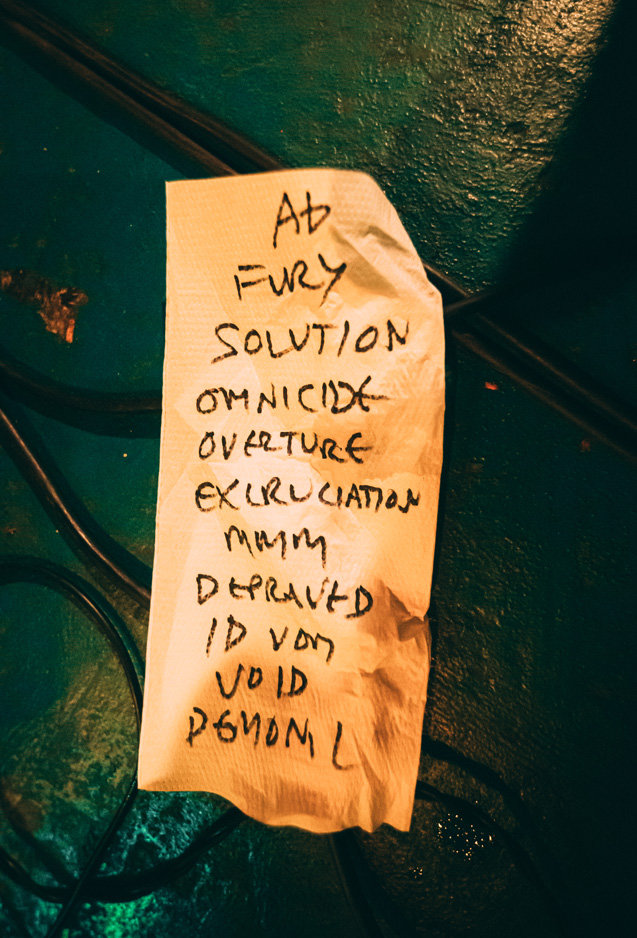 Ab
FURY
SOLUTION
OMNICIDE
OVERTURE
EXCRUCIATION
MMM
DEPRAVED
ID VOM
VOID
DEMON L